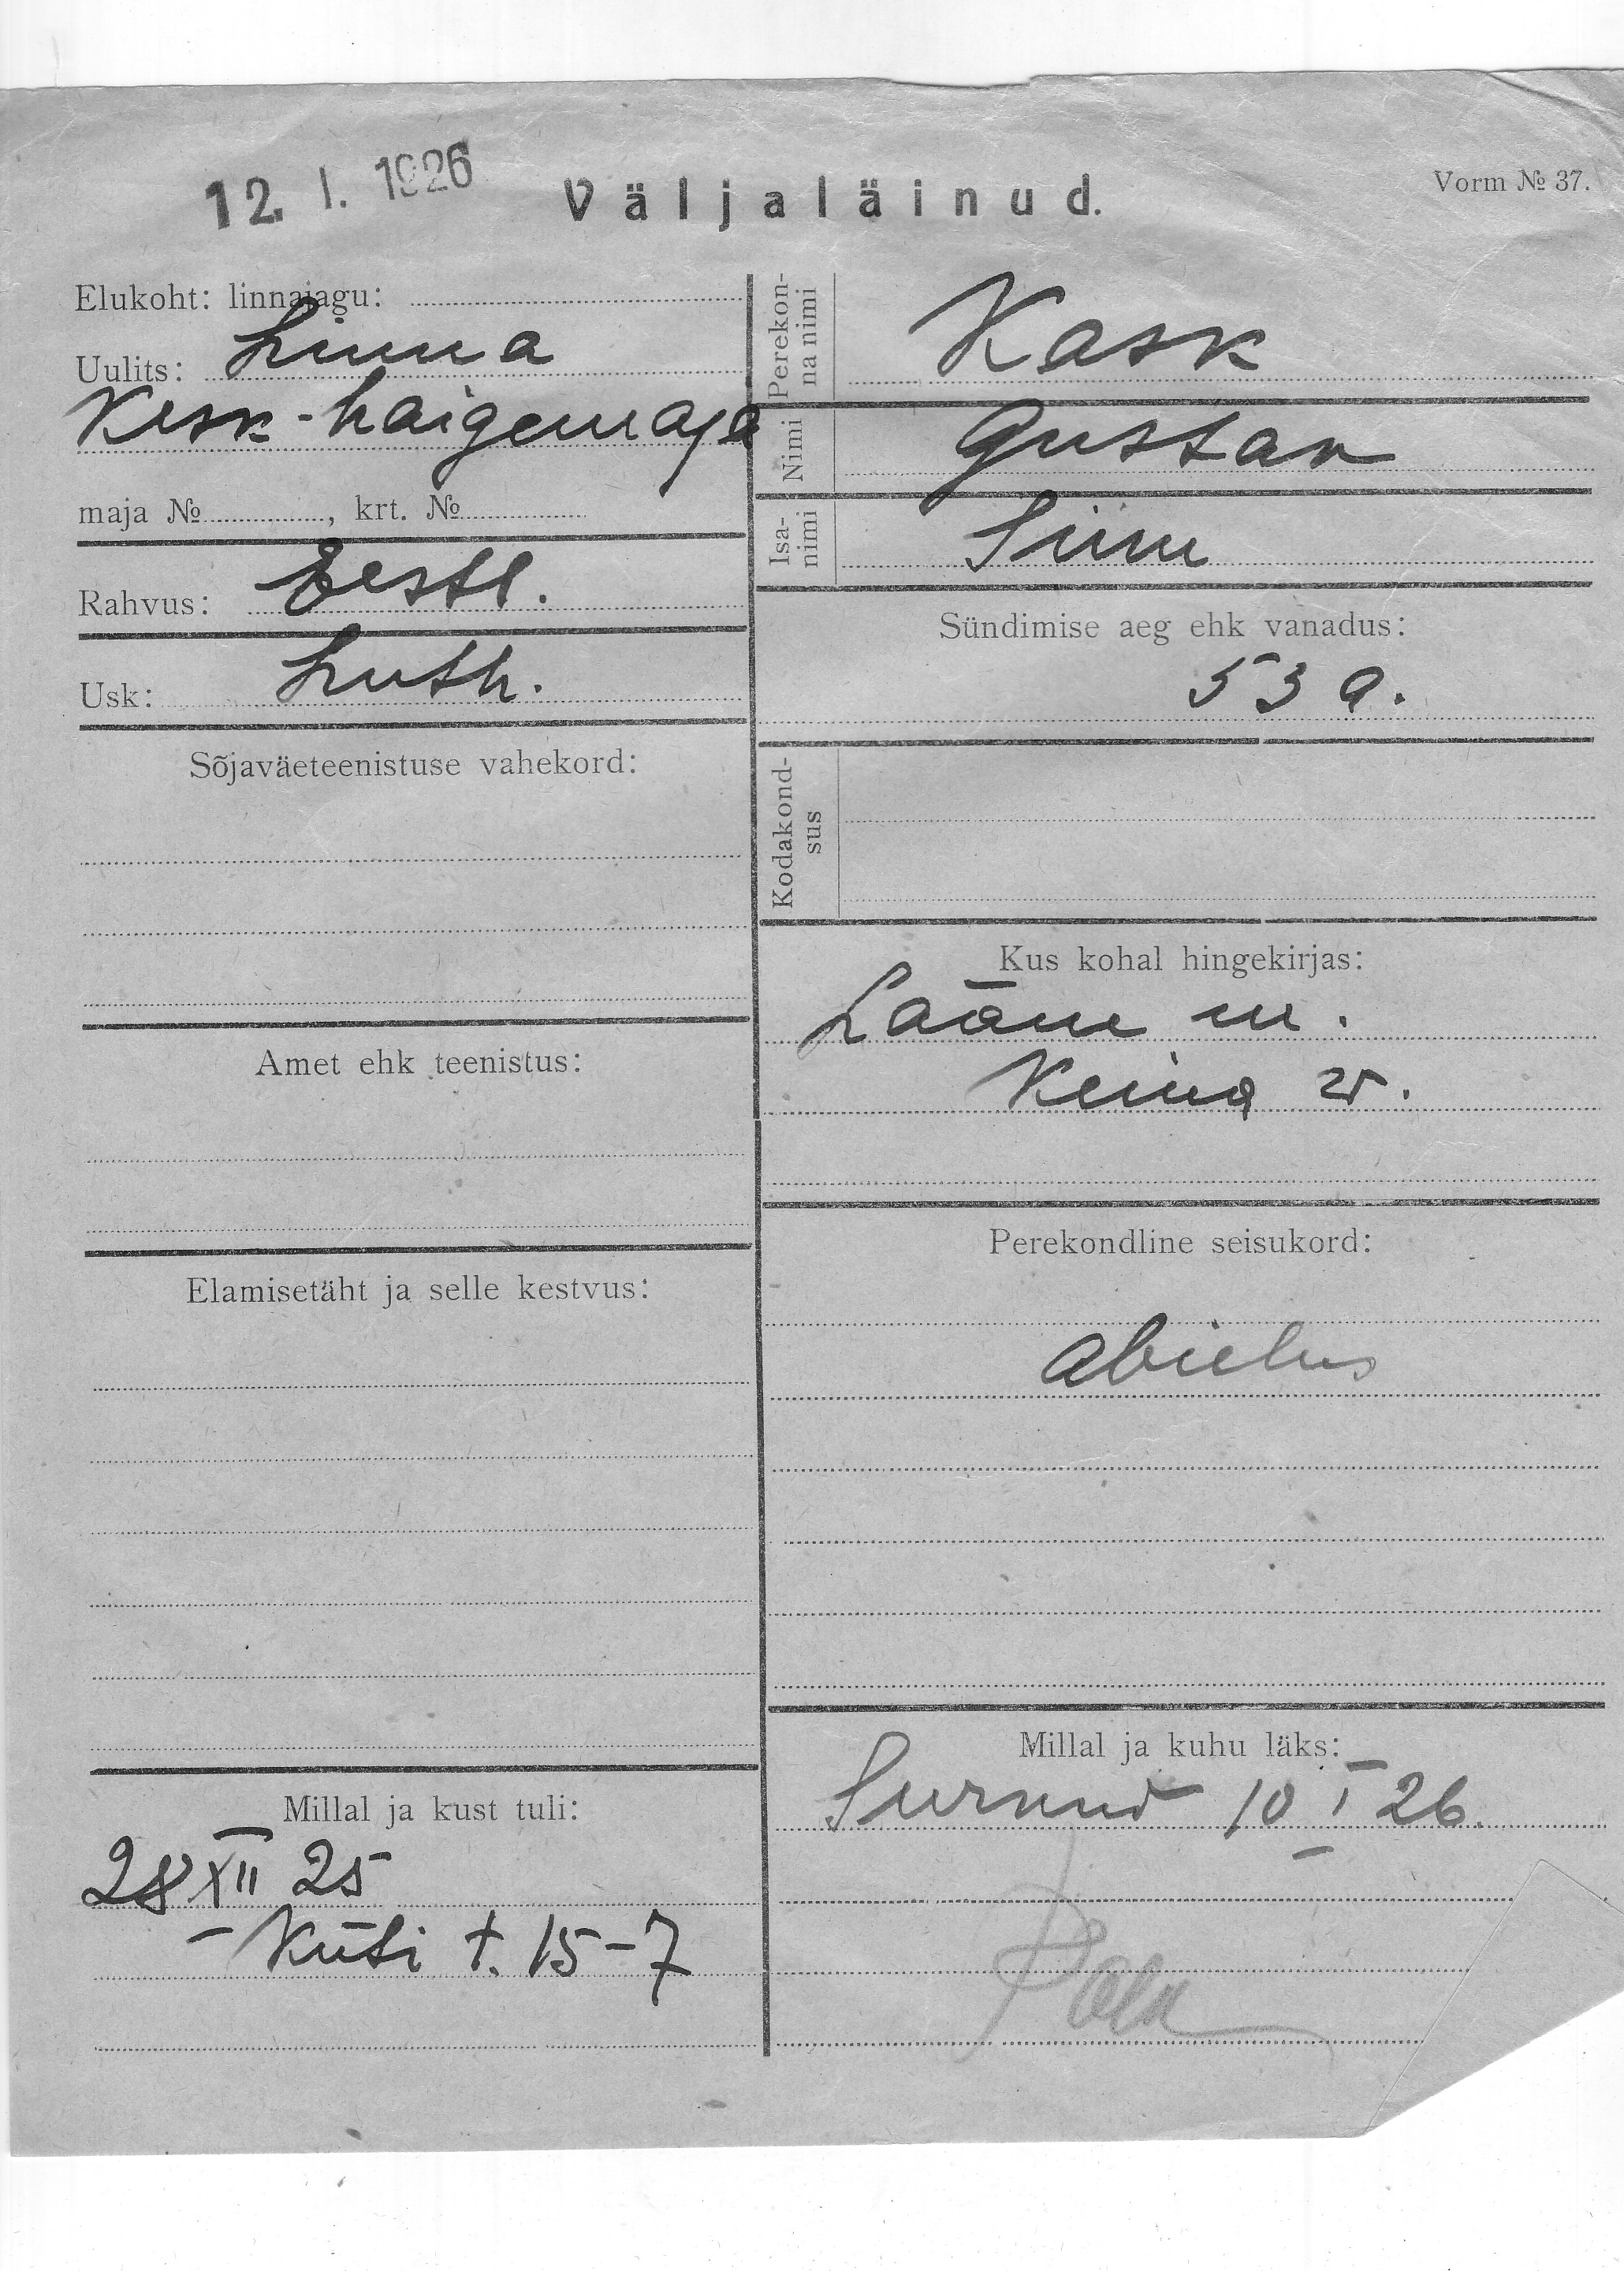 12. I. 1926
Väljaläinud.
Vorm № 37.
Elukoht: linnajagu:
Uulits: Linna
Kesk-haigemaja
maja № , krt. №
Rahvus: Eestl.
Usk: Luth.
Sõjaväeteenistuse vahekord:
Amet ehk teenistus:
Elamisetäht ja selle kestvus:
Millal ja kust tuli:
28 XII 25
- Küti t. 15-7
Perekon-
na nimi
Kask
Nimi
Gustav
Isa-
nimi
Siim
Sündimise aeg ehk vanadus:
53 a.
Kodakond-
sus
Kus kohal hingekirjas:
Lääne m.
Keina v.
Perekondline seisukord:
abielus
Millal ja kuhu läks:
Surnud 10 I 26.